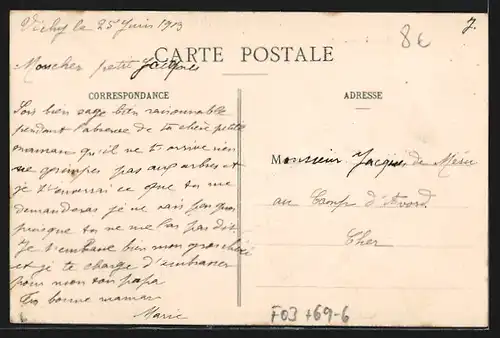 Vichy le 25 Juin 1913
8€
7.
CARTE POSTALE
Mon cher petit Jacques
CORRESPONDANCE
ADRESSE
Sois bien sage bien raisonnable
pendant l'absence de ta chère petite
maman qu'il ne t'arrive rien
ne grimpes pas aux arbres et
je t'enverrai ce que tu me
demanderas je ne sais pas quoi
puisque tu ne me l'as pas dit
Je t'embrasse bien mon gros chéri
et je te charge d'embrasser
pour moi ton papa
Ta bonne maman
Marie
Monsieur Jacques de
au Camp d'Avord
Cher
F03 +69-6